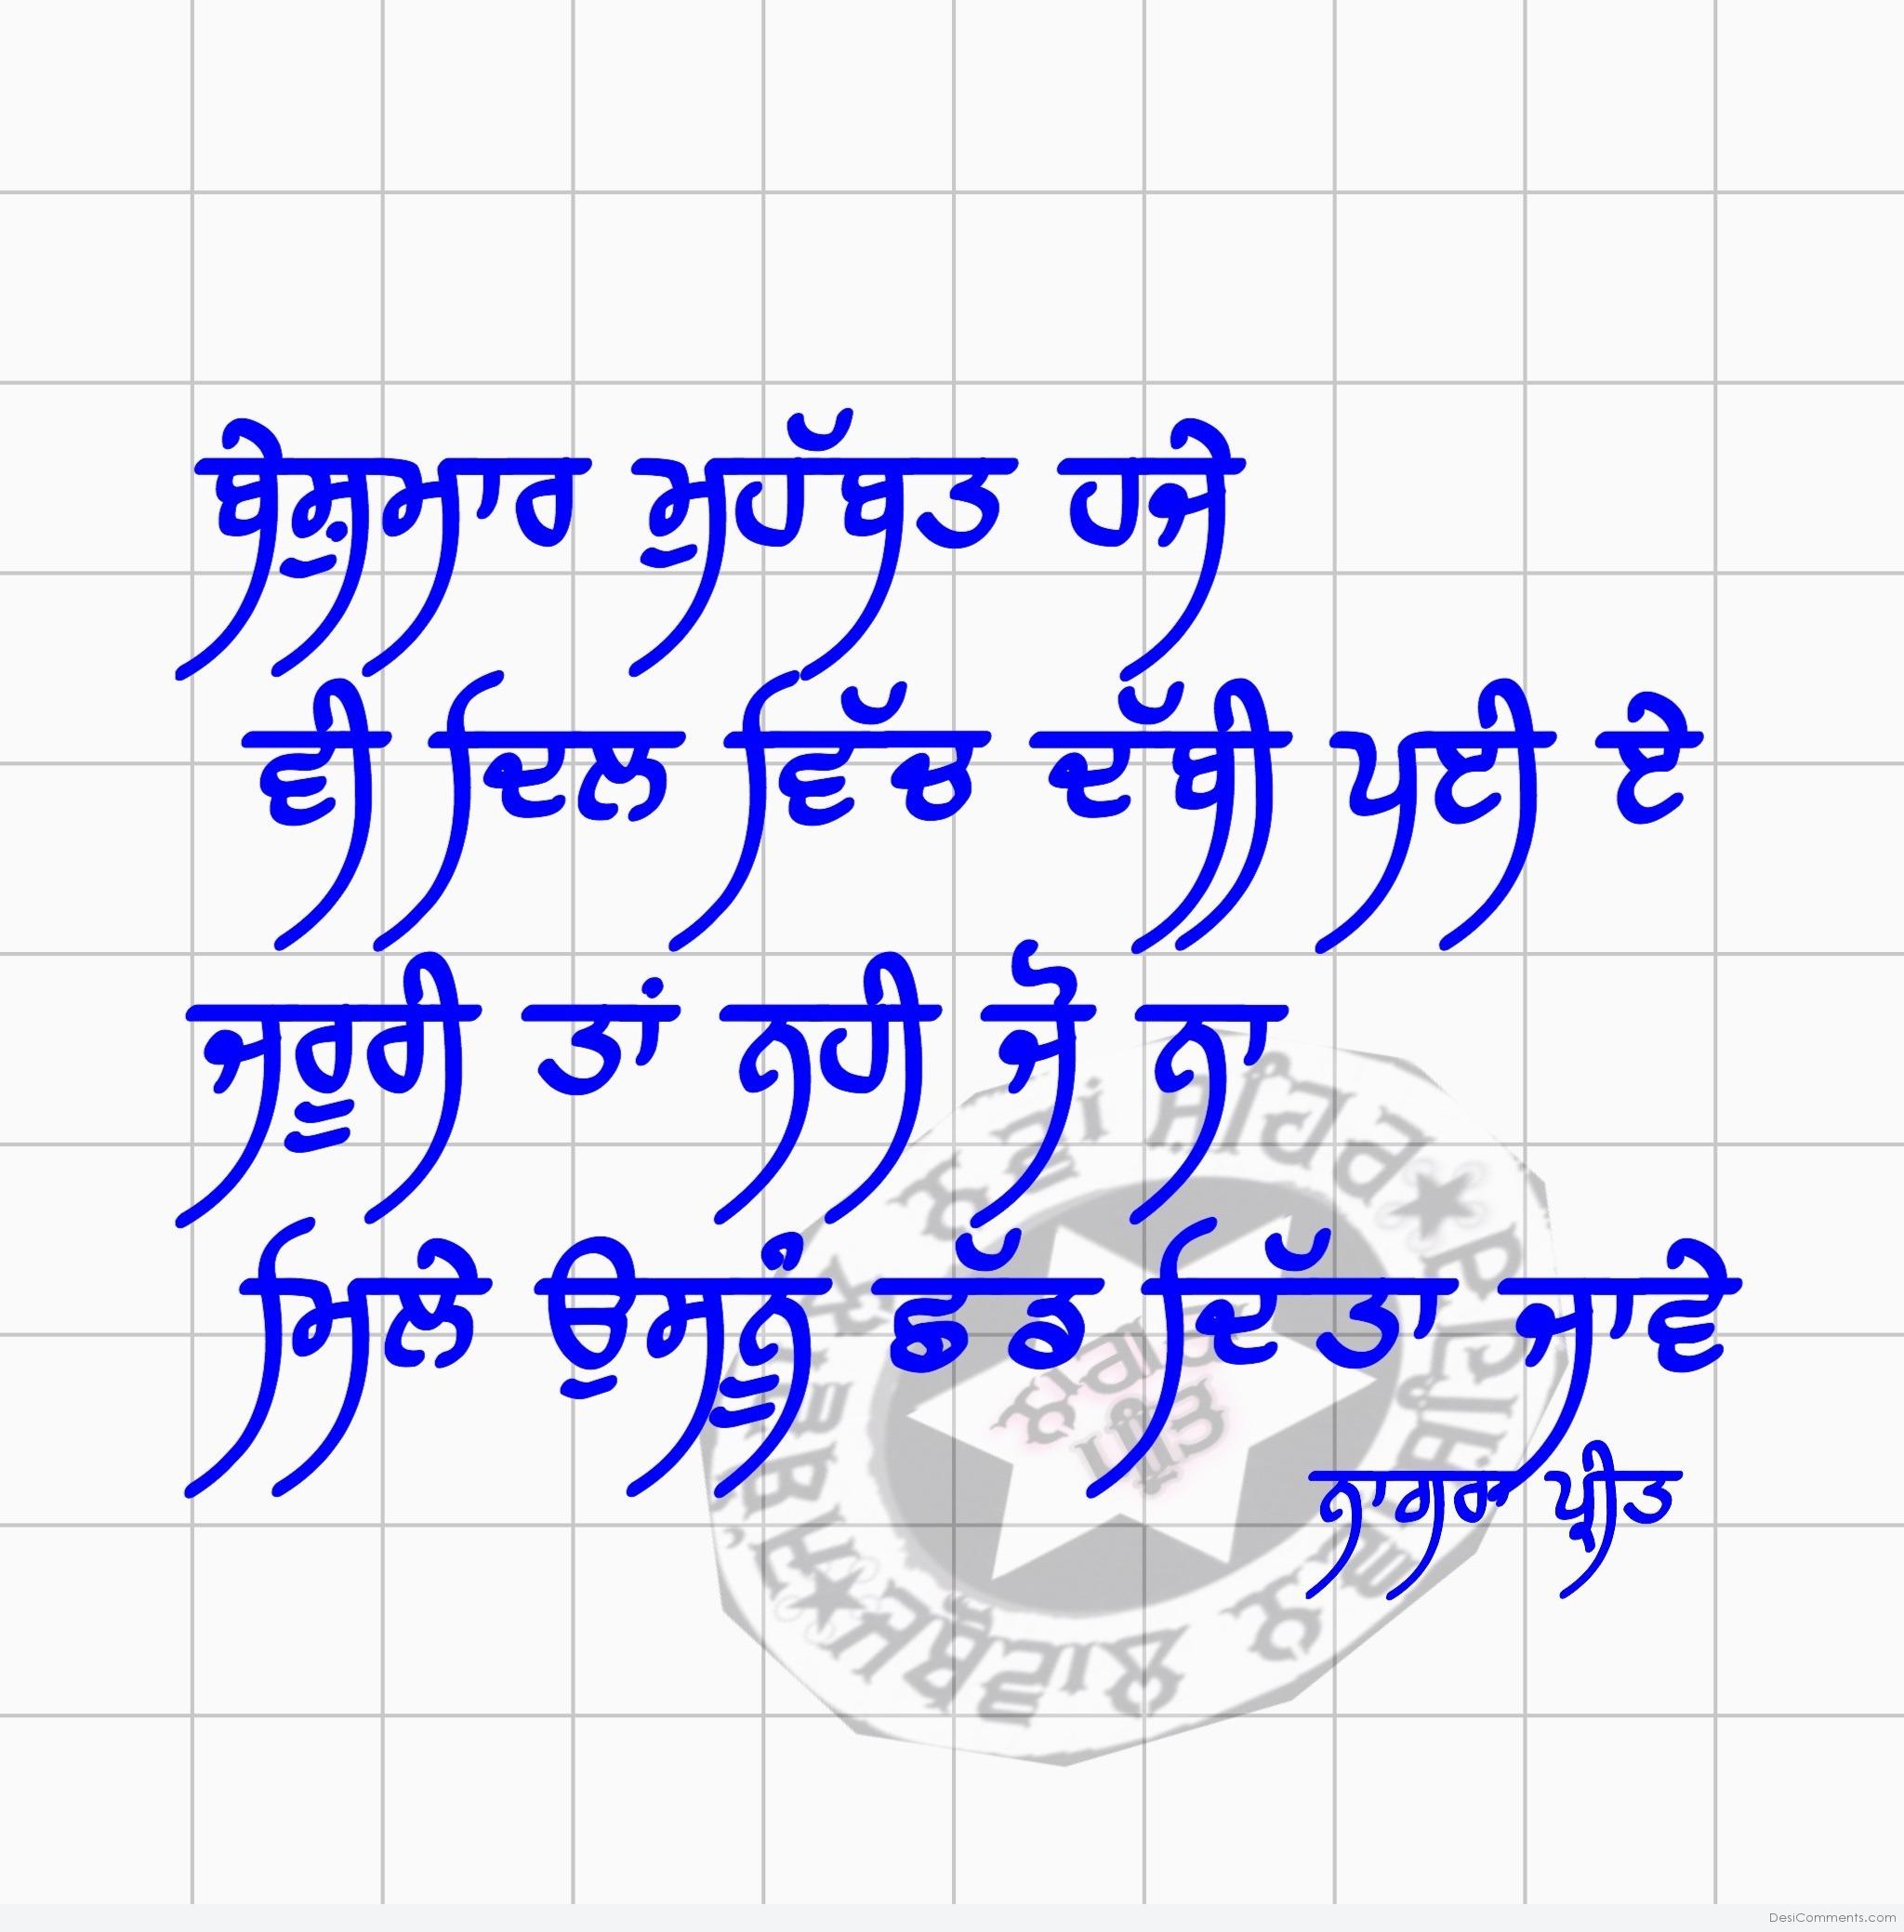 ਬੇਸ਼ੁਮਾਰ ਮੁਹੱਬਤ ਹਜੇ
ਵੀ ਦਿਲ ਵਿੱਚ ਦੱਬੀ ਪਈ ਏ
ਜਰੂਰੀ ਤਾਂ ਨਹੀ ਜੋ ਨਾ
ਮਿਲੇ ਉਸਨੂੰ ਛੱਡ ਦਿੱਤਾ ਜਾਵੇ
ਨਾਗਰਾ ਪ੍ਰੀਤ
DesiComments.com